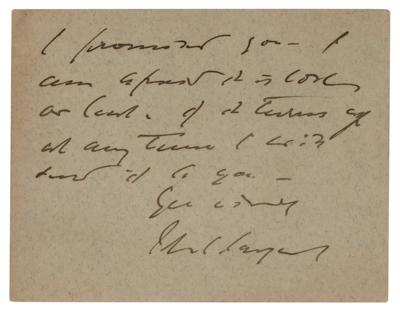 I promised you - I
am afraid it is lost,
or lent. if it turns up
at any time I will
send it to you -
Yrs
John S Sargent